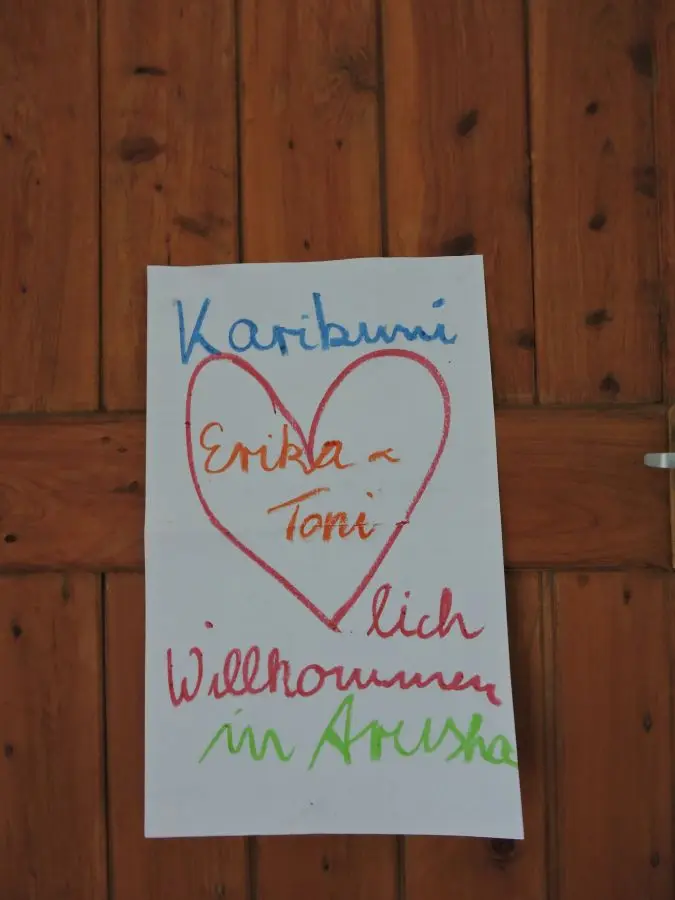 Karibuni
Erika &
Toni
lich
Willkommen
in Arusha